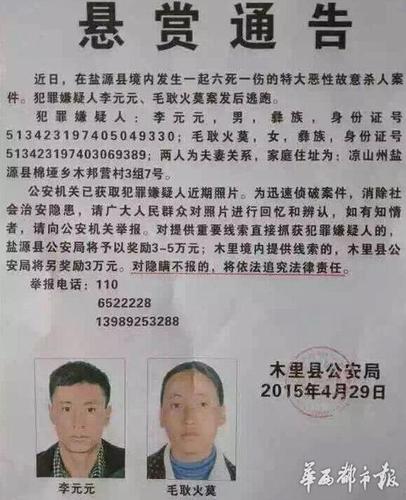 悬赏通告
近日，在盐源县境内发生一起六死一伤的特大恶性故意杀人案
件。犯罪嫌疑人李元元、毛耿火莫案发后逃跑。
犯罪嫌疑人：李元元，男，彝族，身份证号
513423197405049330；毛耿火莫，女，彝族，身份证号
513423197403069389；两人为夫妻关系，家庭住址为：凉山州盐
源县棉垭乡木邦营村3组7号。
公安机关已获取犯罪嫌疑人近期照片。为迅速侦破案件，消除社
会治安隐患，请广大人民群众对照片进行回忆和辨认，如有知情
者，请向公安机关举报。对提供重要线索直接抓获犯罪嫌疑人的，
盐源县公安局将予以奖励3-5万元；木里境内提供线索的，木里县公
安局将另奖励3万元。对隐瞒不报的，将依法追究法律责任。
举报电话：110
6522228
13989253288
木里县公安局
2015年4月29日
李元元
毛耿火莫
华西都市报